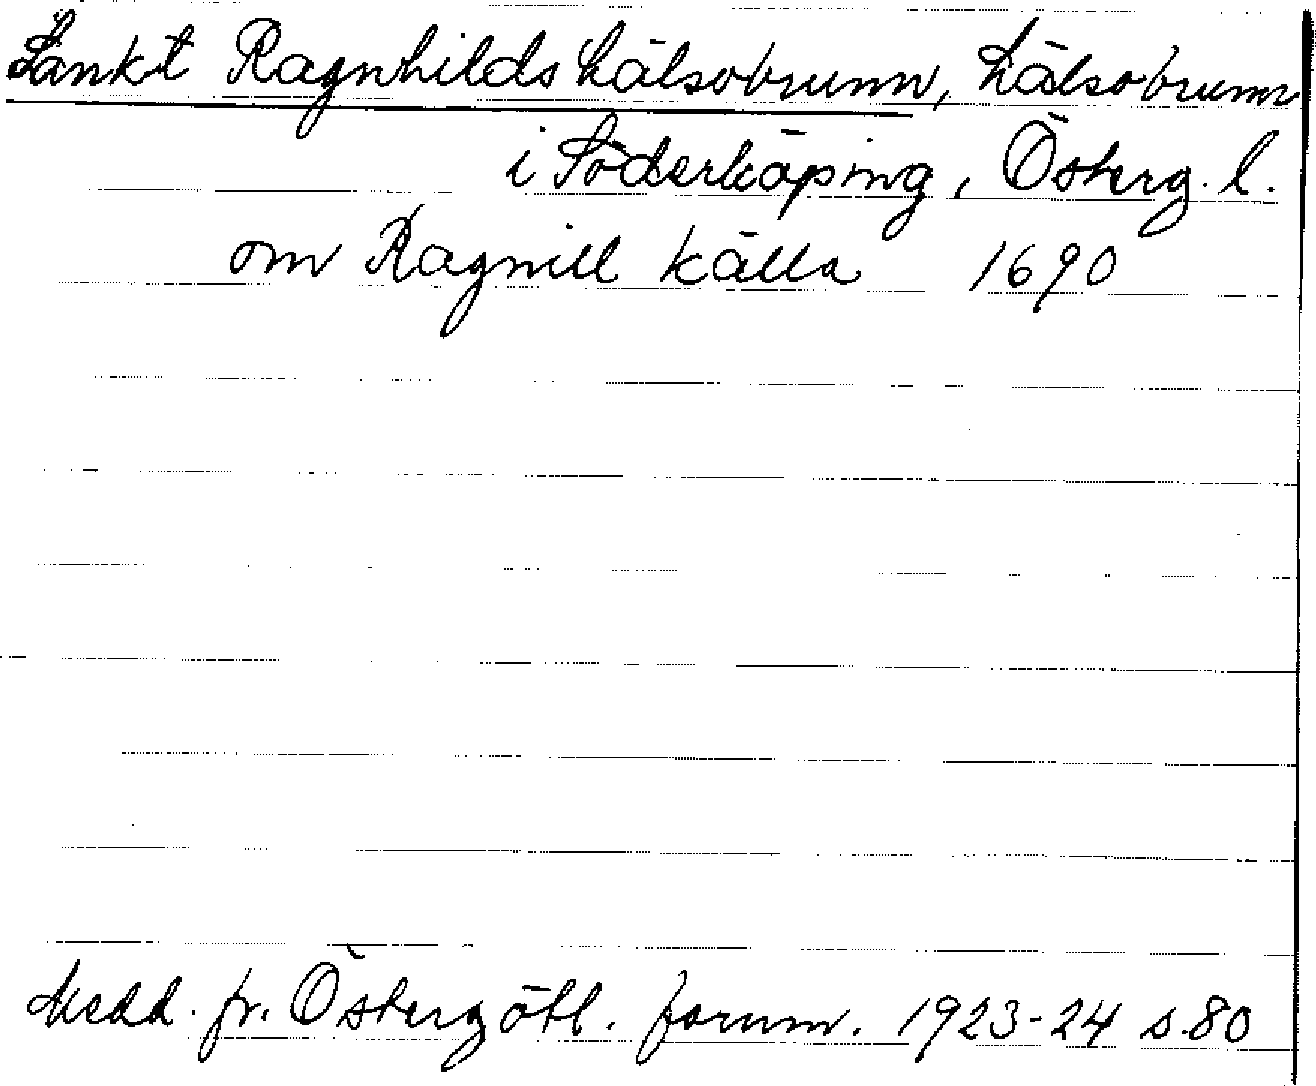 Sankt Ragnhilds hälsobrunn, hälsobrunn
i Söderköping, Österg. l.
om Ragnill källa 1690
Medd. fr. Östergötl. fornm. 1923-24 s. 80